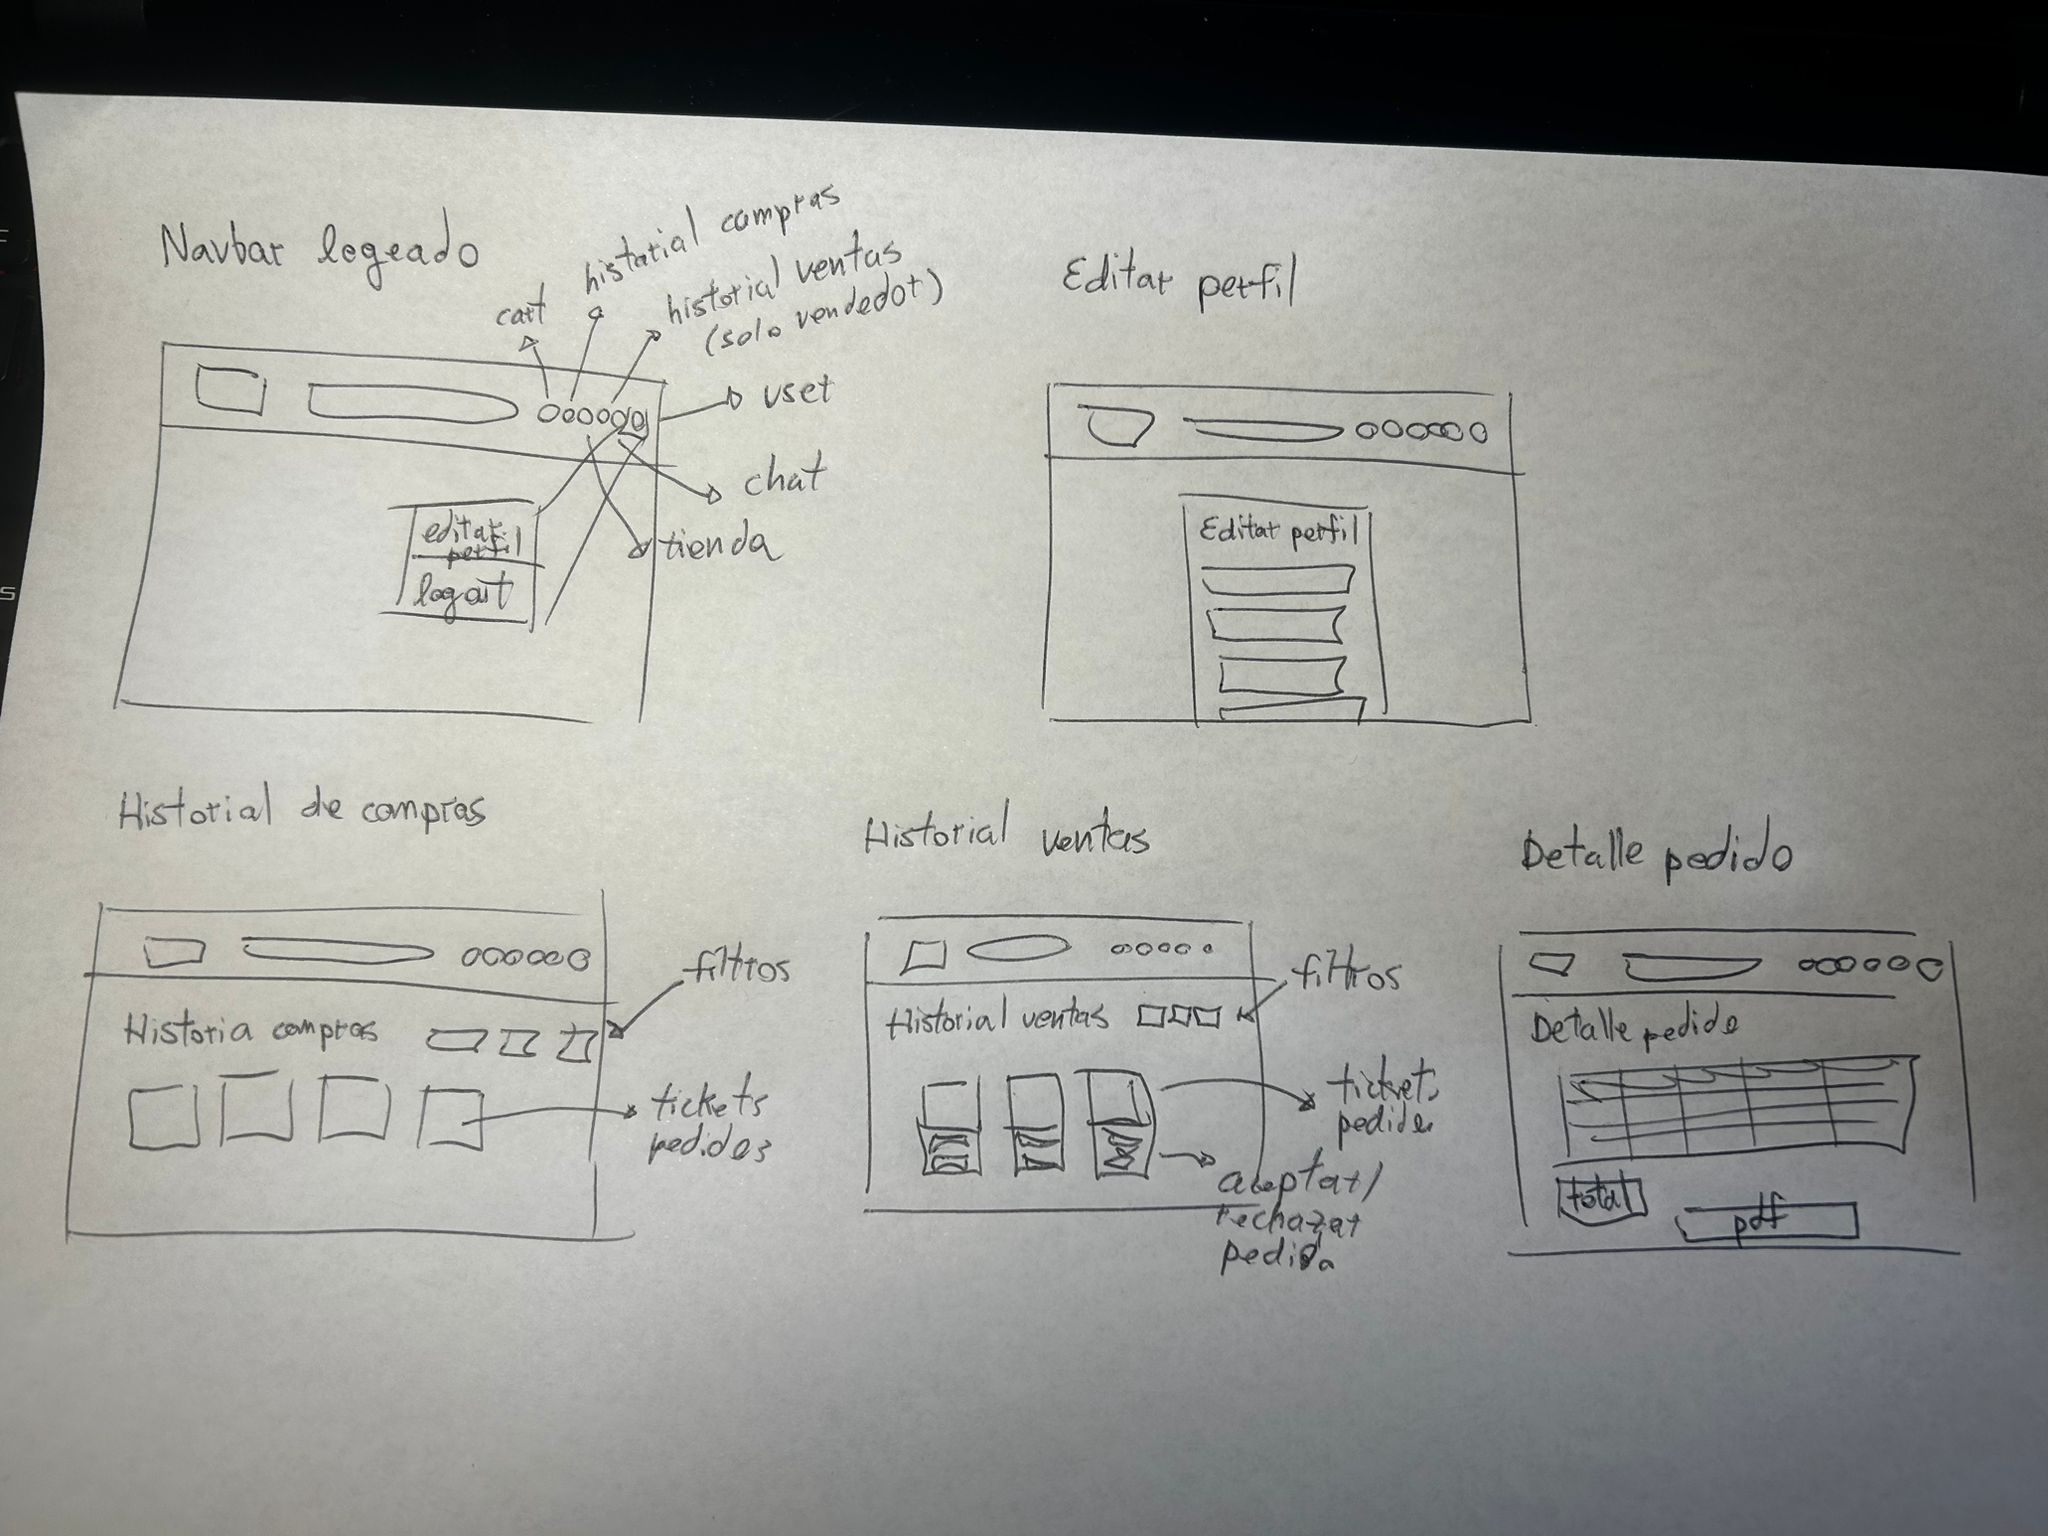 Navbar logeado
cart
historial compras
historial ventas
(solo vendedor)
user
chat
tienda
editar
perfil
logout
Editar perfil
Editar perfil
Historial de compras
filtros
Historia compras
tickets
pedidos
Historial ventas
filtros
Historial ventas
tickets
pedidos
aceptar/
rechazar
pedido
Detalle pedido
Detalle pedido
total
pdf